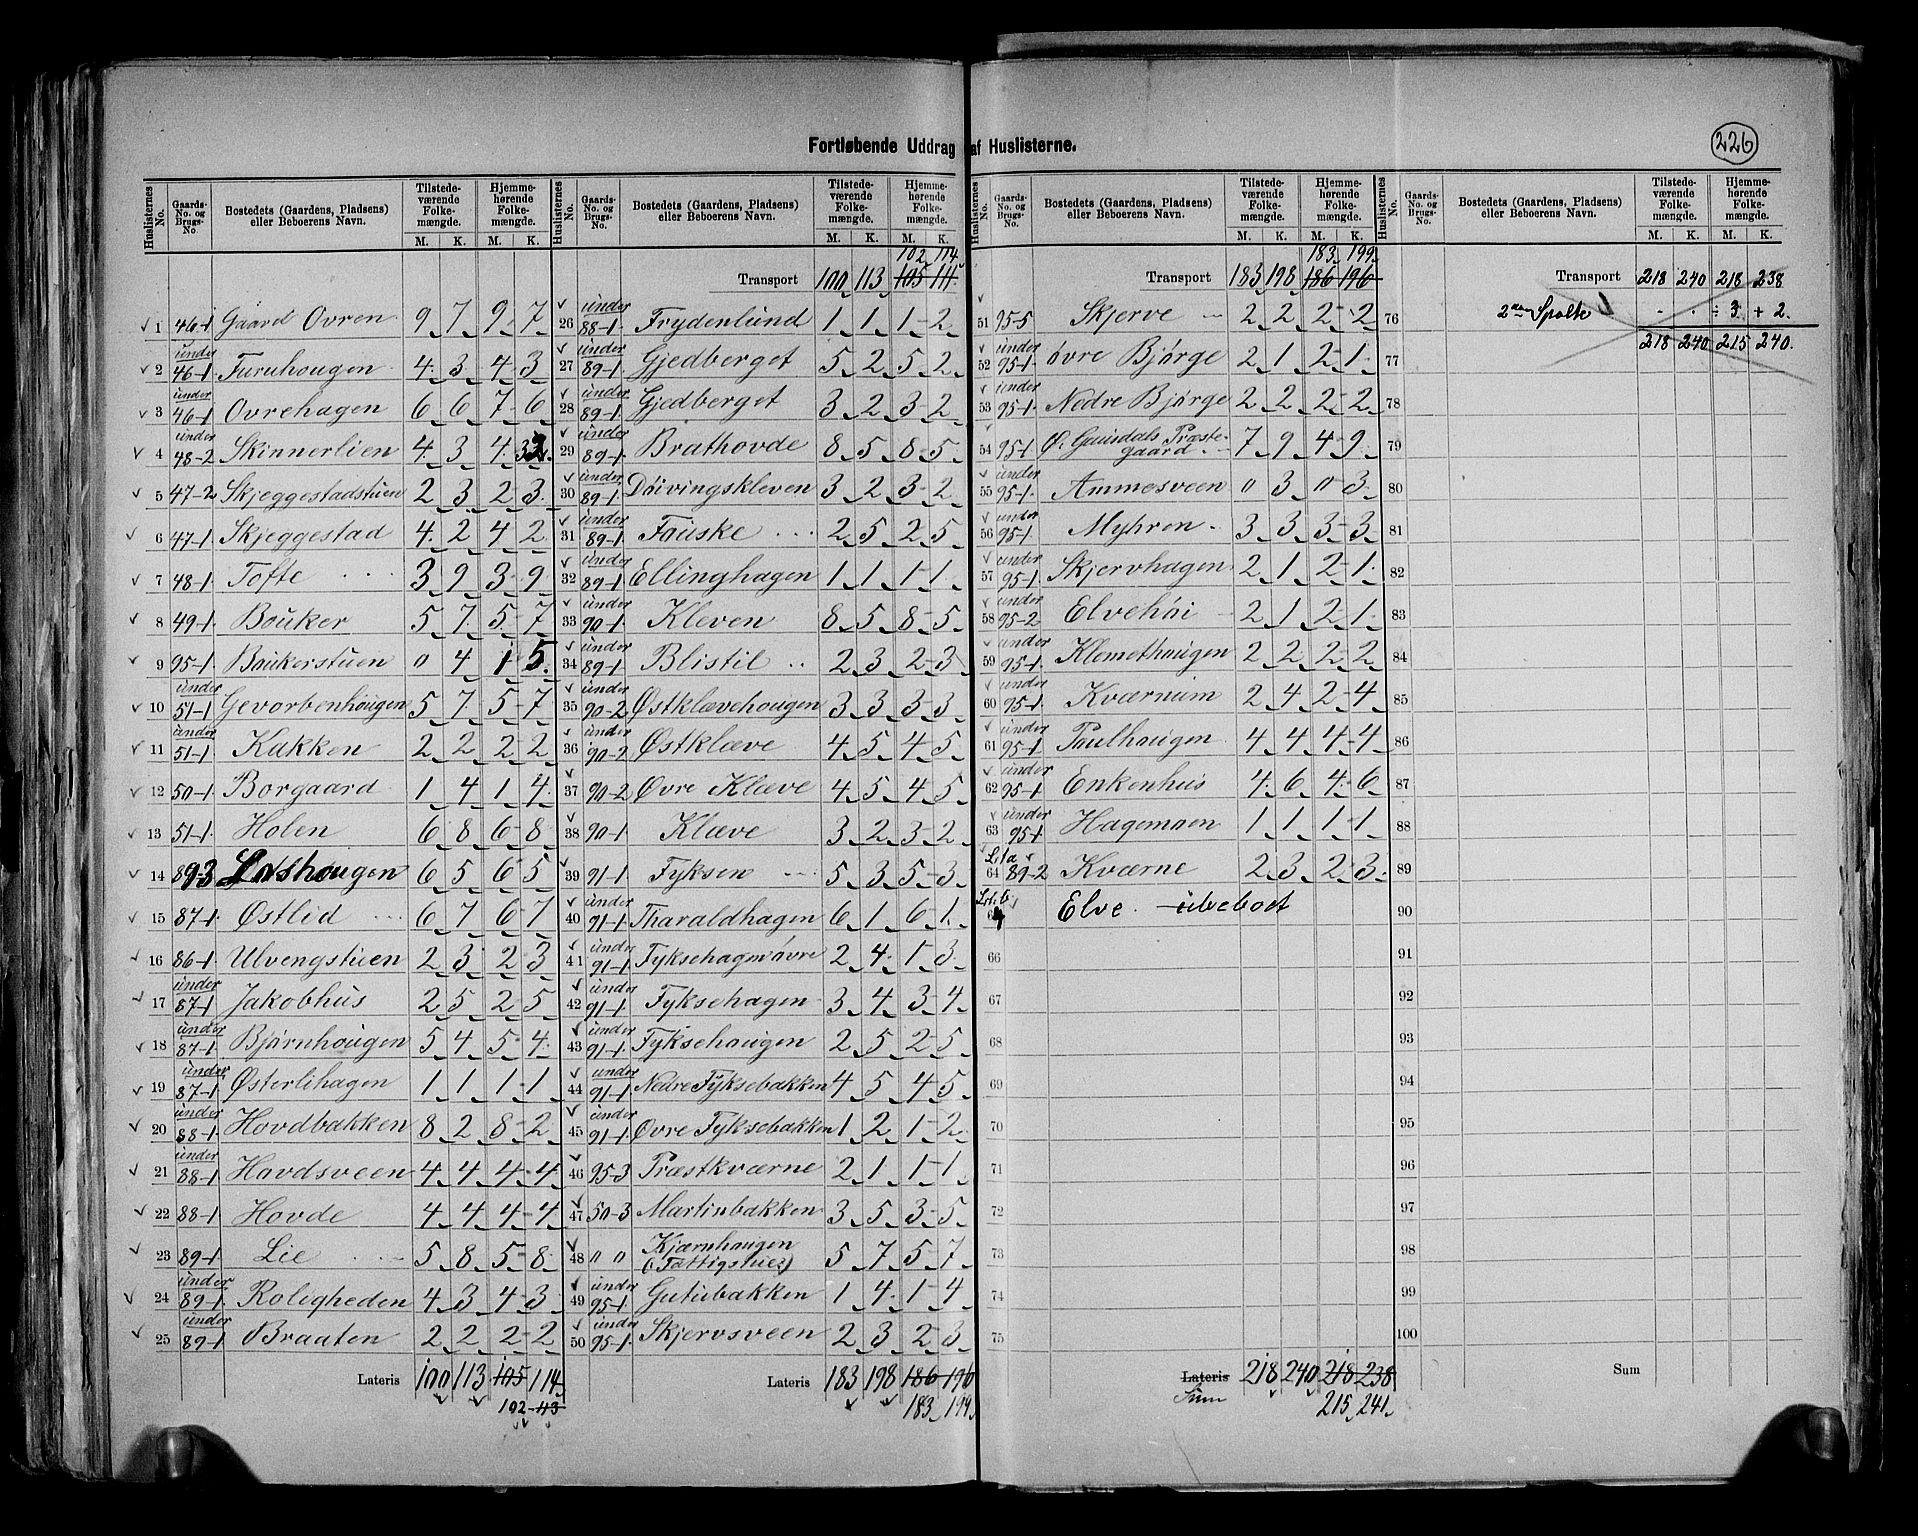 Fortløbende Uddrag af Huslisterne.
226
Huslisternes No. | Gaards-No. og Brugs-No. | Bostedets (Gaardens, Pladsens) eller Beboerens Navn. | Tilstedeværende Folkemængde. M. K. | Hjemmehørende Folkemængde. M. K.
1 46-1 Gaard Ovren 9 7 9 7
2 under 46-1 Furuhougen 4 3 4 3
3 under 46-1 Ovrehagen 6 6 7 6
4 under 48-2 Skinnerlien 4 3 4 3
5 47-2 Skjeggestadstuen 2 3 2 3
6 47-1 Skjeggestad 4 2 4 2
7 48-1 Tofte 3 9 3 9
8 49-1 Bouker 5 7 5 7
9 95-1 Boukerstuen " 4 1 5
10 under 51-1 Gevorbenhougen 5 7 5 7
11 under 51-1 Kakken 2 2 2 2
12 50-1 Borgaard 1 4 1 4
13 51-1 Holen 6 8 6 8
14 Loshougen 6 5 6 5
15 87-1 Østlid 6 7 6 7
16 86-1 Ulvengstuen 2 3 2 3
17 under 87-1 Jakobhus 2 5 2 5
18 under 87-1 Bjørnhougen 5 4 5 4
19 under 87-1 Østerlihagen 1 1 1 1
20 under 88-1 Hovdbakken 8 2 8 2
21 under 88-1 Hovdsveen 4 4 4 4
22 88-1 Hovde 4 4 4 4
23 89-1 Lie 5 8 5 8
24 under 89-1 Roligheden 4 3 4 3
25 under 89-1 Braaten 2 2 2 2
Lateris 100 113 105 114
102 113
102 114
Transport 100 113 105 111
26 under 88-1 Frydenlund 1 1 1 2
27 under 89-1 Gjedberget 5 2 5 2
28 under 89-1 Gjedberget 3 2 3 2
29 under 89-1 Brathovde 8 5 8 5
30 under 89-1 Døivingskleven 3 2 3 2
31 under 89-1 Fauske 2 5 2 5
32 under 89-1 Ellinghagen 1 1 1 1
33 under 90-1 Kleven 8 5 8 5
34 under 89-1 Blistil 2 3 2 3
35 under 90-2 Østklævehougen 3 3 3 3
36 under 90-2 Østklæve 4 5 4 5
37 90-2 Øvre Klæve 4 5 4 5
38 90-1 Klæve 3 2 3 2
39 91-1 Fyksen 5 3 5 3
40 under 91-1 Tharaldhagen 6 1 6 1
41 under 91-1 Fyksehagen øvre 2 4 1 3
42 under 91-1 Fyksehagen 3 4 3 4
43 under 91-1 Fyksehaugen 2 5 2 5
44 under 91-1 Nedre Fyksebakken 4 5 4 5
45 under 91-1 Øvre Fyksebakken 1 2 1 2
46 95-3 Præstkværne 2 1 1 1
47 50-3 Martinbakken 3 5 3 5
48 " " Kjærnhaugen (Fattigshus) 5 7 5 7
49 under 95-1 Gutubakken 1 4 1 4
50 under 95-1 Skjervsveen 2 3 2 3
Lateris 183 198 186 196
183 199
183 199
Transport 183 198 186 196
51 95-5 Skjerve 2 2 2 2
52 under 95-1 øvre Bjørge 2 1 2 1
53 under 95-1 Nedre Bjørge 2 2 2 2
54 95-1 Ø. Gausdals Præstegaard 7 9 4 9
55 under 95-1 Ammesveen " 3 " 3
56 under 95-1 Myhren 3 3 3 3
57 under 95-1 Skjervhagen 2 1 2 1
58 under 95-2 Elvehøi 2 1 2 1
59 under 95-1 Klemethaugen 2 2 2 2
60 under 95-1 Kværnum 2 4 2 4
61 under 95-1 Paulhaugen 4 4 4 4
62 under 95-1 Enkenhus 4 6 4 6
63 under 95-1 Hagemoen 1 1 1 1
64 L. a 89-2 Kværne 2 3 2 3
Lit. b 64 Elve - ubeboet
66
67
68
69
70
71
72
73
74
75
Lateris Sum 218 240 218 238
215 241
Transport 218 240 218 238
76 2den Spalte . . ÷ 3 + 2
77 218 240 215 240
78
79
80
81
82
83
84
85
86
87
88
89
90
91
92
93
94
95
96
97
98
99
100
Sum